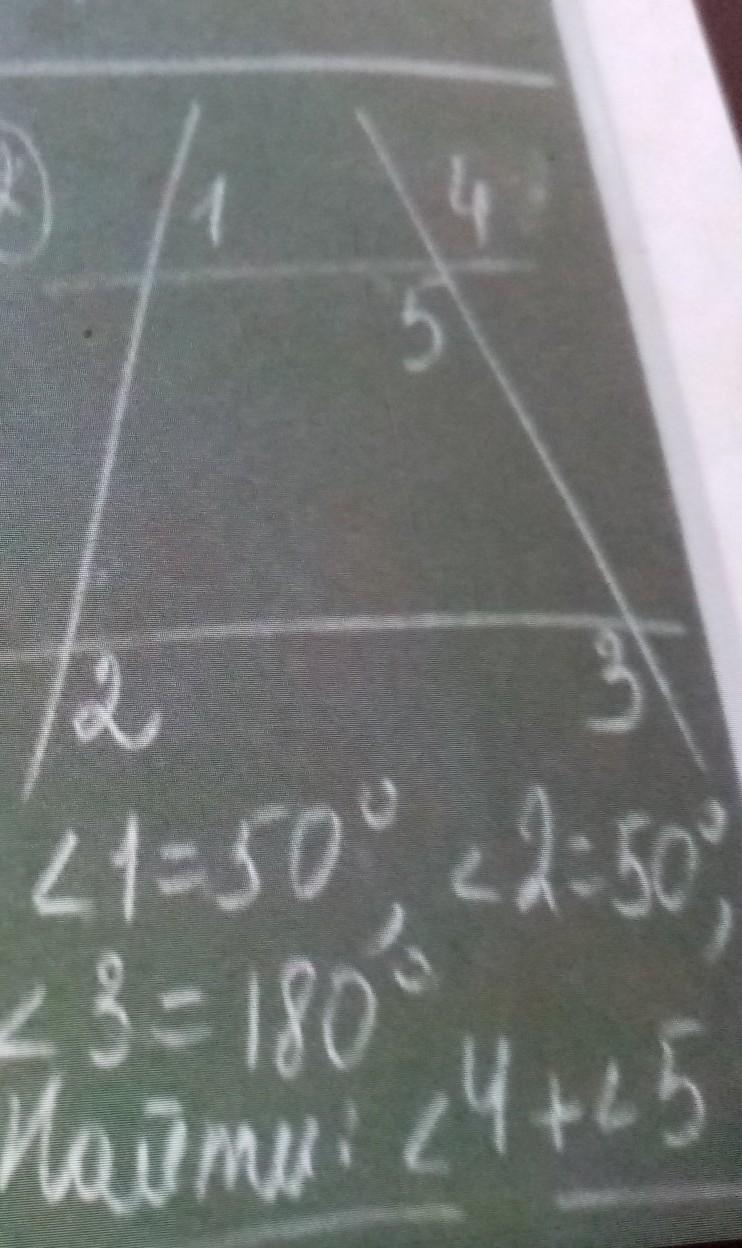 1 4
5
2 3
∠1=50°, ∠2=50°,
∠3=180°
Найти: ∠4+∠5